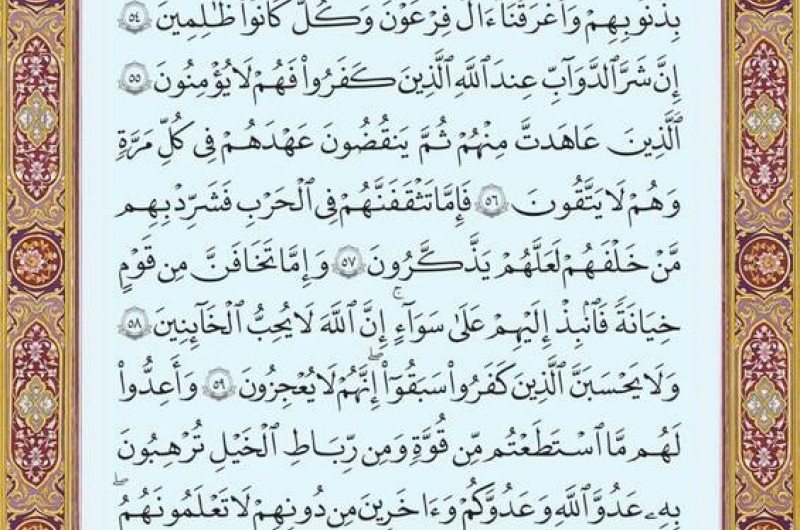 بِذُنُوبِهِمْ وَأَغْرَقْنَآ ءَالَ فِرْعَوْنَ وَكُلٌّ كَانُواْ ظَٰلِمِينَ ٥٤
إِنَّ شَرَّ ٱلدَّوَآبِّ عِندَ ٱللَّهِ ٱلَّذِينَ كَفَرُواْ فَهُمْ لَا يُؤْمِنُونَ ٥٥
ٱلَّذِينَ عَٰهَدتَّ مِنْهُمْ ثُمَّ يَنقُضُونَ عَهْدَهُمْ فِى كُلِّ مَرَّةٍ
وَهُمْ لَا يَتَّقُونَ ٥٦ فَإِمَّا تَثْقَفَنَّهُمْ فِى ٱلْحَرْبِ فَشَرِّدْ بِهِم
مَّنْ خَلْفَهُمْ لَعَلَّهُمْ يَذَّكَّرُونَ ٥٧ وَإِمَّا تَخَافَنَّ مِن قَوْمٍ
خِيَانَةً فَٱنۢبِذْ إِلَيْهِمْ عَلَىٰ سَوَآءٍ ۚ إِنَّ ٱللَّهَ لَا يُحِبُّ ٱلْخَآئِنِينَ ٥٨
وَلَا يَحْسَبَنَّ ٱلَّذِينَ كَفَرُواْ سَبَقُوٓاْ ۖ إِنَّهُمْ لَا يُعْجِزُونَ ٥٩ وَأَعِدُّواْ
لَهُم مَّا ٱسْتَطَعْتُم مِّن قُوَّةٍ وَمِن رِّبَاطِ ٱلْخَيْلِ تُرْهِبُونَ
بِهِۦ عَدُوَّ ٱللَّهِ وَعَدُوَّكُمْ وَءَاخَرِينَ مِن دُونِهِمْ لَا تَعْلَمُونَهُمُ ۖ